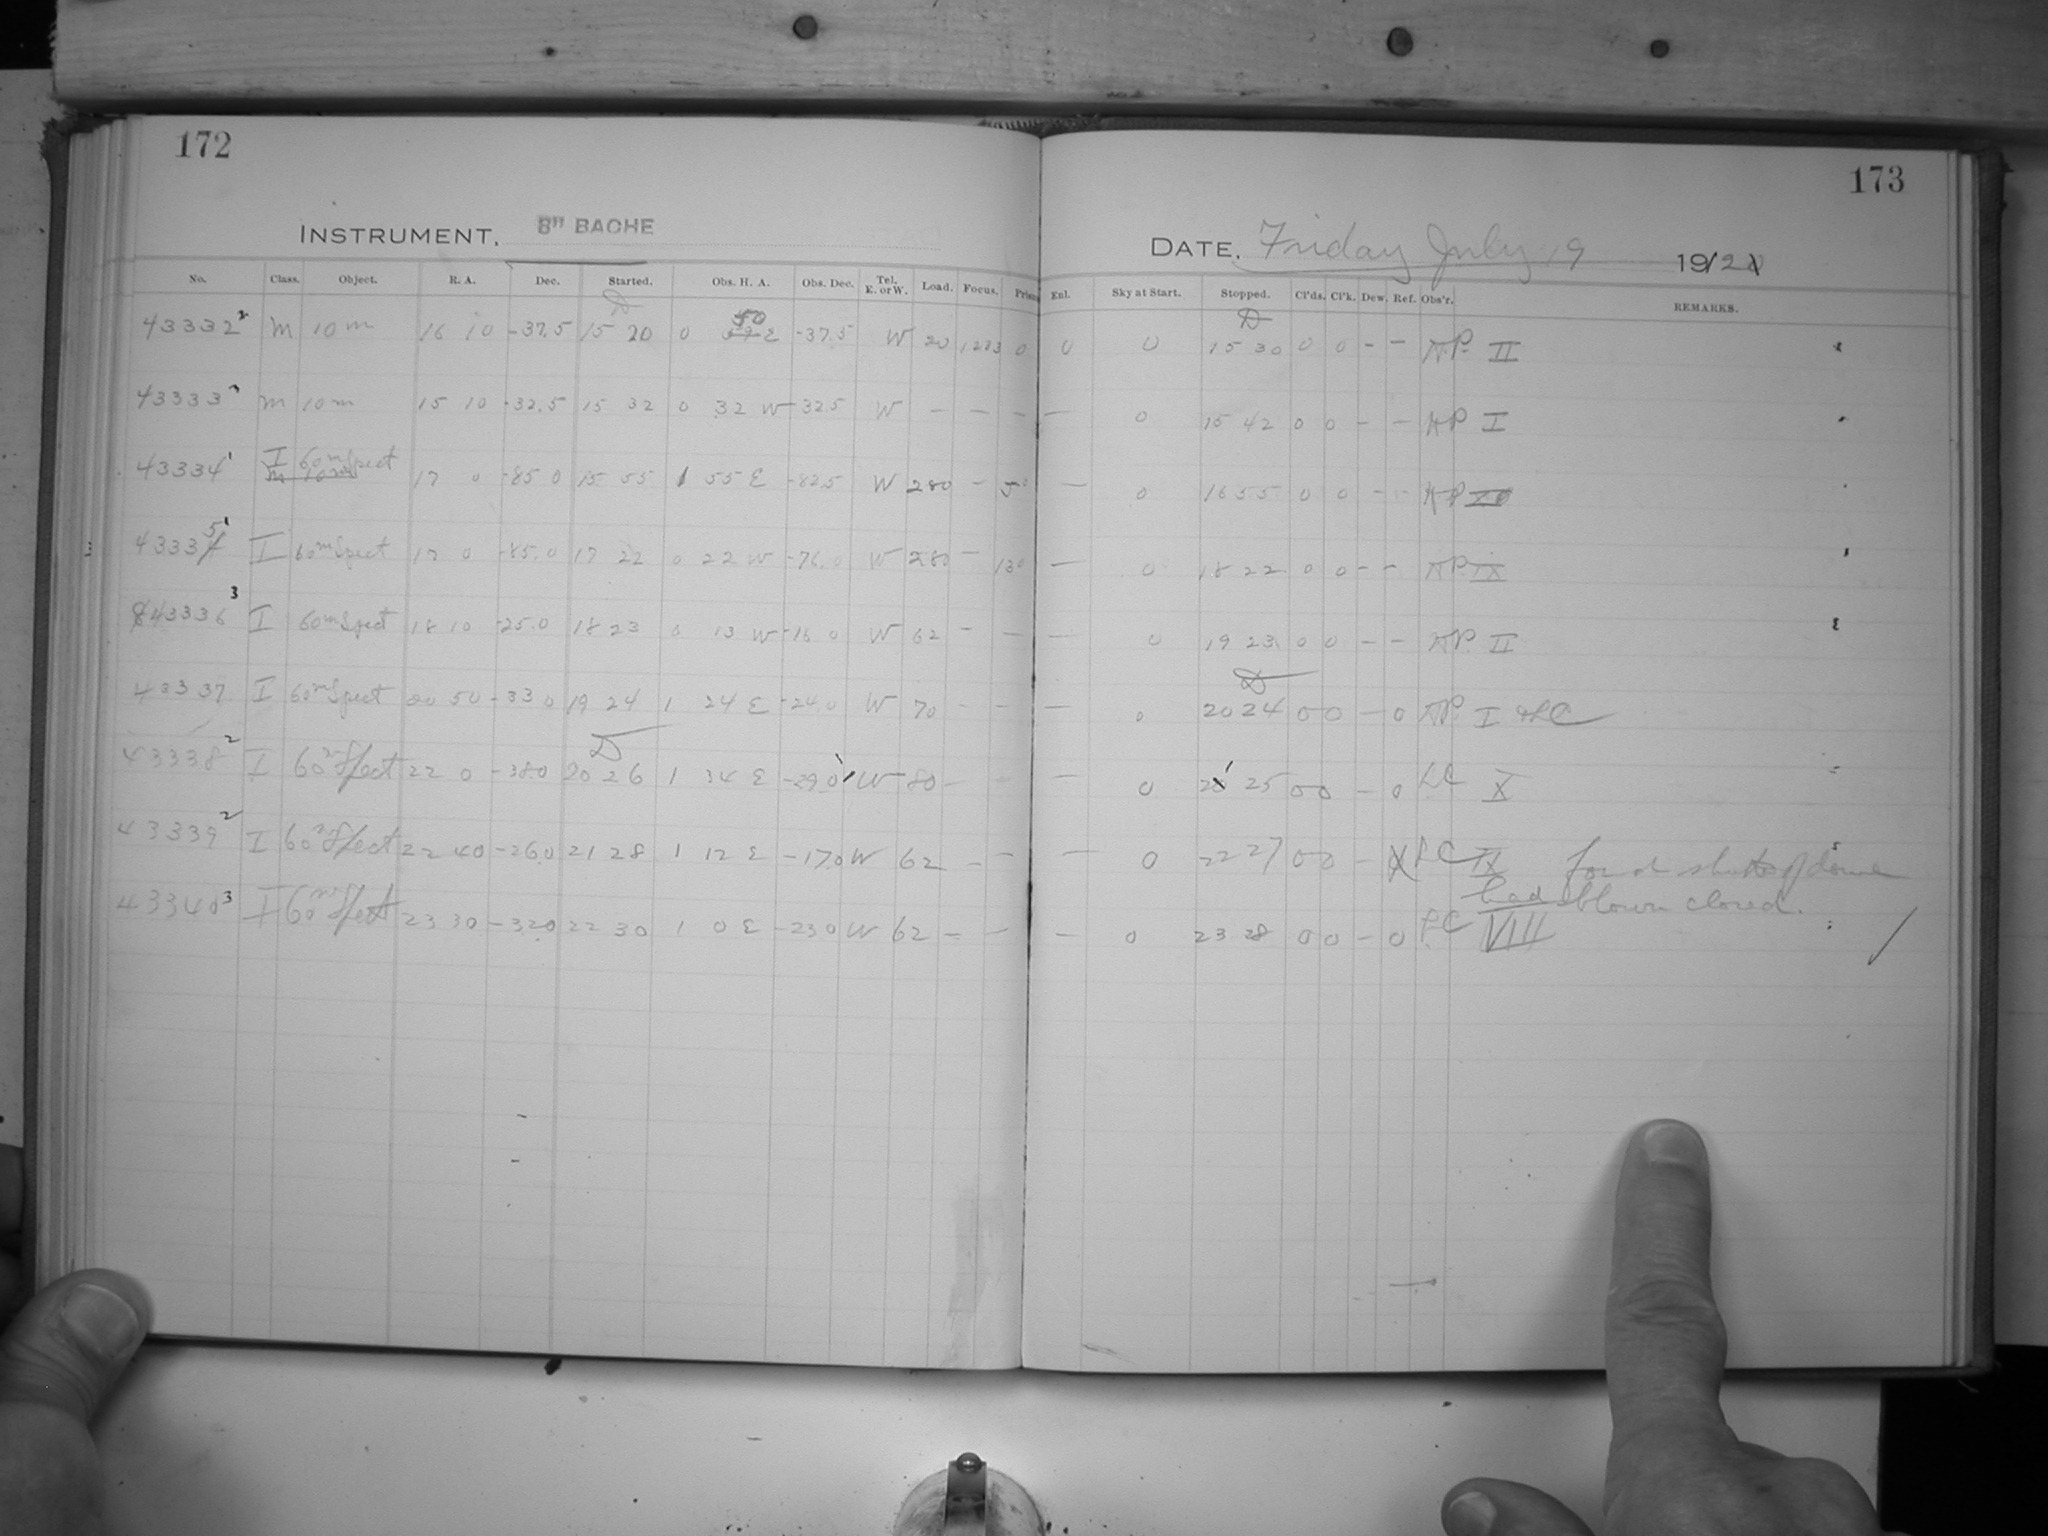 172
173
INSTRUMENT, 8" BACHE
DATE, Friday July 19 1912
No. Class. Object. R. A. Dec. Started. Obs. H. A. Obs. Dec. Tel. E. or W. Load. Focus. Prism Enl. Sky at Start. Stopped. Cl'ds. Cl'k. Dew. Ref. Obs'r. REMARKS.
D 50 D
43332 2 m 10 m 16 10 -37.5 15 20 0 E -37.5 W 20 1223 0 0 0 15 30 0 0 - - AP. II
43333 m 10 m 15 10 -32.5 15 32 0 32 W -32.5 W — — — — 0 15 42 0 0 - - AP I
I 60m Spect
43334 1 m 10m 17 0 -85 0 15 55 1 55 E -82.5 W 280 - 50 — 0 16 55 0 0 - - AP
5 1
4333 I 60m Spect 17 0 -85.0 17 22 0 22 W -76.0 W 280 - 130 — 0 18 22 0 0 - - AP. IX
43336 3 I 60m Spect 18 10 -25.0 18 23 0 13 W -16 0 W 62 - — — 0 19 23 0 0 - - AP. II
D
43337 I 60m Spect 20 50 -33 0 19 24 1 24 E -24.0 W 70 - - — 0 20 24 0 0 - 0 AP. I & LC
D
43338 2 I 60m Spect 22 0 -38.0 20 26 1 34 E -29.0 W 80 - - — 0 21 25 0 0 - 0 LC X
43339 2 I 60m Spect 22 40 -26.0 21 28 1 12 E -17.0 W 62 - - — 0 22 27 0 0 - X LC IX found shutter of dome
had blown closed.
43340 3 I 60m Spect 23 30 -32.0 22 30 1 0 E -23.0 W 62 - - — 0 23 28 0 0 - 0 LC VIII